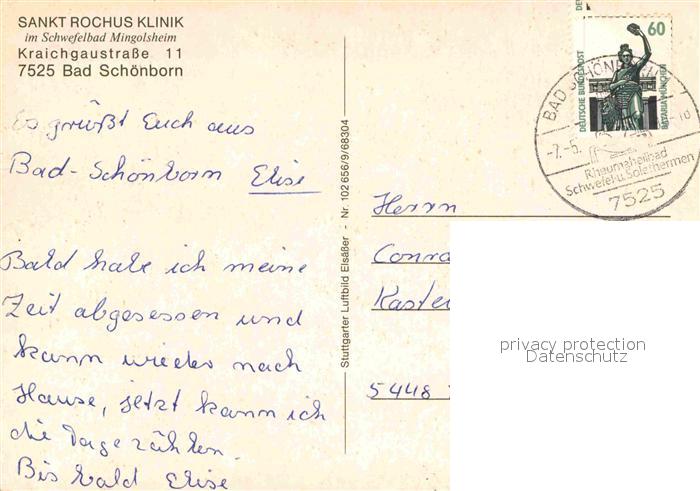 SANKT ROCHUS KLINIK
im Schwefelbad Mingolsheim
Kraichgaustraße 11
7525 Bad Schönborn
Es grüßt Euch aus
Bad-Schönborn Elise
Bald habe ich meine
Zeit abgesessen und
kann wieder nach
Hause, jetzt kann ich
die Tage zählen.
Bis bald Elise
Stuttgarter Luftbild Elsäßer - Nr. 102 656/9/68304
60
DEUTSCHE BUNDESPOST
BAVARIA MÜNCHEN
BAD SCHÖNBORN
-7.-5.
Rheumaheilbad
Schwefel-u. Solethermen
7525
Herrn
Conra
Kaste
5448
privacy protection
Datenschutz